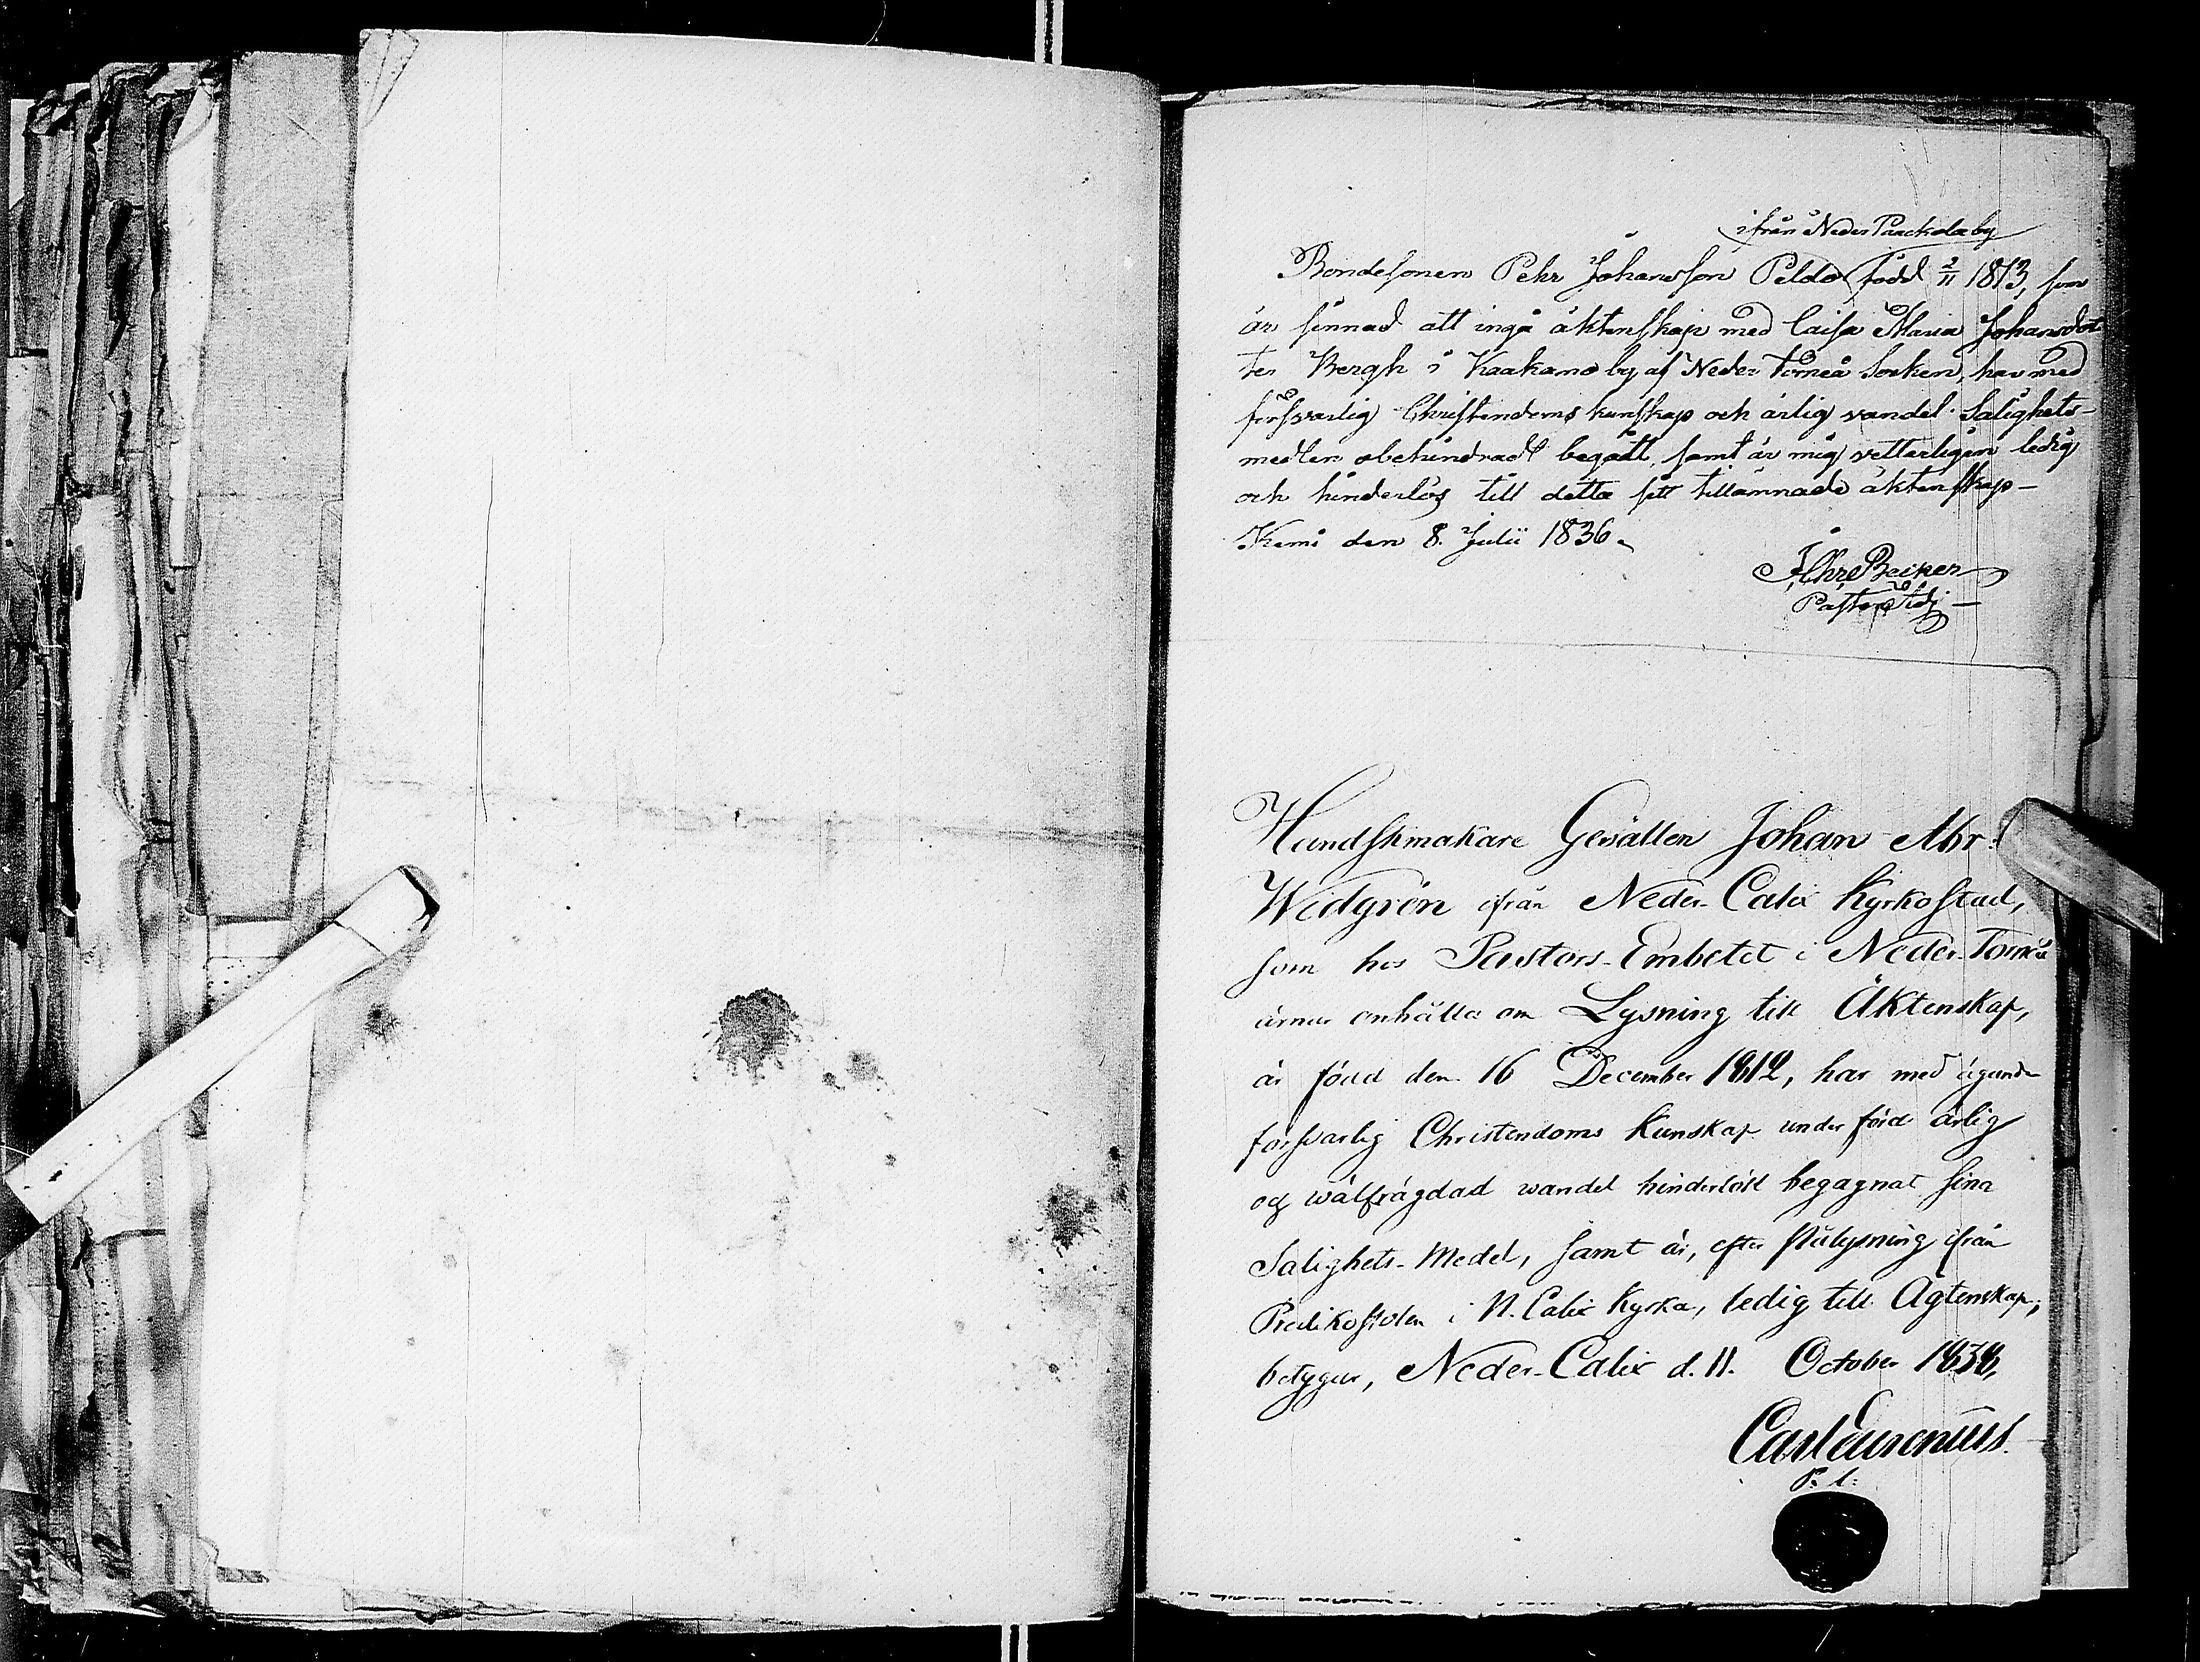 ifrån Neder Paackola by
Bondesonen Pehr Johansson Peldo född 2/11 1813, som
är sinnad att ingå äktenskap med Caisa Maria Johansdot
ter Bergh i Kaakamo by af Neder Torneå Socken, har med
försvarlig Christendoms kunskap och ärlig vandel Salighets-
medlen obehindradt begått, samt är mig vetterligen ledig
och hinderlös till detta sitt tillämnade äktenskap-
Kemi den 8. Julii 1836.
Pastors Adj
Handskmakare Gesällen Johan Abr:
Widgrén ifrån Neder-Calix Kyrkostad,
som hos Pastors-Embetet i Neder-Torneå
ärnar anhålla om Lysning till Äktenskap,
är född den 16 December 1812, har med ägande
försvarlig Christendoms Kunskap under förd ärlig
og wälfrägdad wandel hinderlöst begagnat sina
Salighets-Medel, samt är, efter pålysning ifrån
Predikostolen i N. Calix Kyrka, ledig till Ägtenskap;
betygar, Neder-Calix d. 11. October 1838,
Carl Eurenius.
P. l: